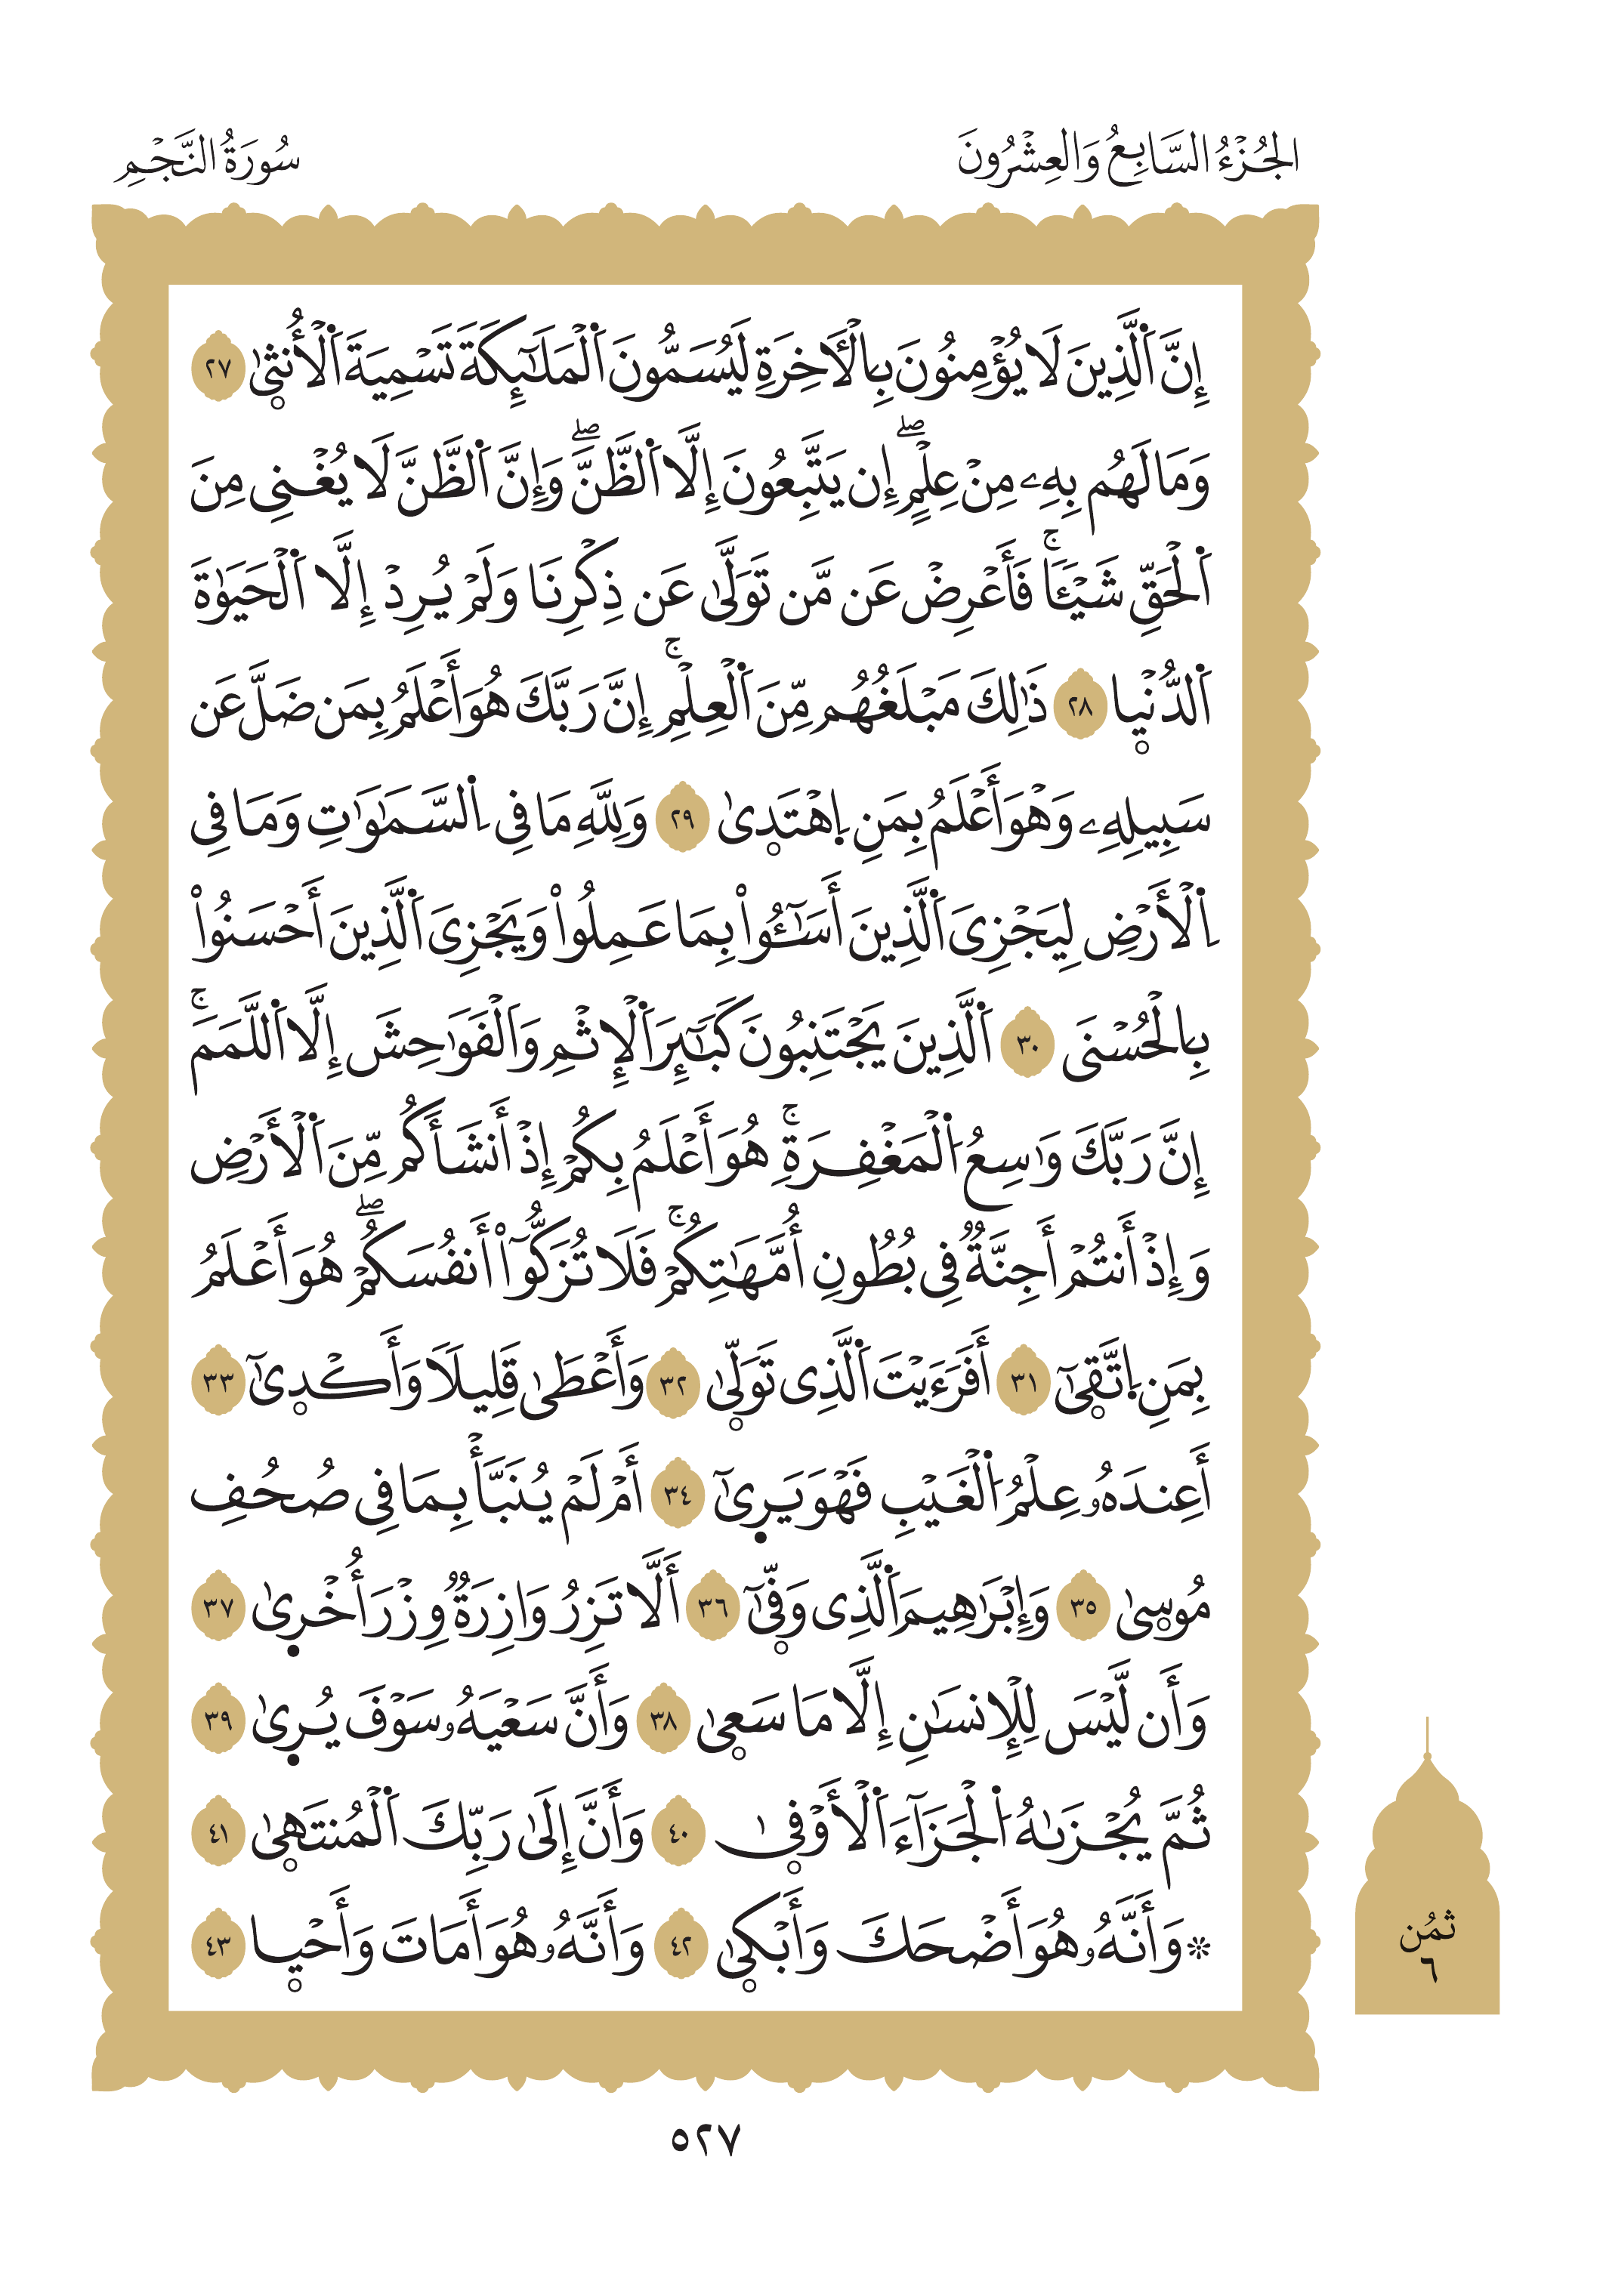 الجُزْءُ السَّابِعُ وَالعِشْرُونَ
سُورَةُ النَّجْمِ
إِنَّ اَ۬لَّذِينَ لَا يُؤْمِنُونَ بِالْأٓخِرَةِ لَيُسَمُّونَ اَ۬لْمَلَٰٓئِكَةَ تَسْمِيَةَ اَ۬لْأُنث۪ىٰ ٢٧
وَمَا لَهُم بِهِۦ مِنْ عِلْمٍۖ إِن يَتَّبِعُونَ إِلَّا اَ۬لظَّنَّۖ وَإِنَّ اَ۬لظَّنَّ لَا يُغْنِى مِنَ
اَ۬لْحَقِّ شَيْـٔٗاۚ فَأَعْرِضْ عَن مَّن تَوَلَّىٰ عَن ذِكْرِنَا وَلَمْ يُرِدْ إِلَّا اَ۬لْحَيَوٰةَ
اَ۬لدُّنْي۪ا ٢٨ ذَٰلِكَ مَبْلَغُهُم مِّنَ اَ۬لْعِلْمِۚ إِنَّ رَبَّكَ هُوَ أَعْلَمُ بِمَن ضَلَّ عَن
سَبِيلِهِۦ وَهْوَ أَعْلَمُ بِمَنِ اِ۪هْتَد۪ىٰ ٢٩ وَلِلَّهِ مَا فِى اِ۬لسَّمَٰوَٰتِ وَمَا فِى
اِ۬لْأَرْضِ لِيَجْزِىَ اَ۬لَّذِينَ أَسَٰٓـُٔواْ بِمَا عَمِلُواْ وَيَجْزِىَ اَ۬لَّذِينَ أَحْسَنُواْ
بِالْحُسْنَى ٣٠ اَ۬لَّذِينَ يَجْتَنِبُونَ كَبَٰٓئِرَ اَ۬لْإِثْمِ وَاَ۬لْفَوَٰحِشَ إِلَّا اَ۬للَّمَمَۚ
إِنَّ رَبَّكَ وَٰسِعُ اُ۬لْمَغْفِرَةِۚ هُوَ أَعْلَمُ بِكُمْ إِذْ أَنشَأَكُم مِّنَ اَ۬لْأَرْضِ
وَإِذْ أَنتُمْ أَجِنَّةٞ فِى بُطُونِ أُمَّهَٰتِكُمْۚ فَلَا تُزَكُّوٓاْ أَنفُسَكُمْۖ هُوَ أَعْلَمُ
بِمَنِ اِ۪تَّق۪ىٰٓ ٣١ أَفَرَءَيْتَ اَ۬لَّذِى تَوَلّ۪ىٰ ٣٢ وَأَعْطَىٰ قَلِيلٗا وَأَكْد۪ىٰٓ ٣٣
أَعِندَهُۥ عِلْمُ اُ۬لْغَيْبِ فَهْوَ يَر۪ىٰٓ ٣٤ أَمْ لَمْ يُنَبَّأْ بِمَا فِى صُحُفِ
مُوس۪ىٰ ٣٥ وَإِبْرَٰهِيمَ اَ۬لَّذِى وَفّ۪ىٰٓ ٣٦ أَلَّا تَزِرُ وَازِرَةٞ وِزْرَ أُخْر۪ىٰ ٣٧
وَأَن لَّيْسَ لِلْإِنسَٰنِ إِلَّا مَا سَع۪ىٰ ٣٨ وَأَنَّ سَعْيَهُۥ سَوْفَ يُر۪ىٰ ٣٩
ثُمَّ يُجْزَىٰهُ اُ۬لْجَزَآءَ اَ۬لْأَوْف۪ىٰ ٤٠ وَأَنَّ إِلَىٰ رَبِّكَ اَ۬لْمُنتَه۪ىٰ ٤١
۞ وَأَنَّهُۥ هُوَ أَضْحَكَ وَأَبْك۪ىٰ ٤٢ وَأَنَّهُۥ هُوَ أَمَاتَ وَأَحْي۪ا ٤٣
ثُمُن
٦
٥٢٧